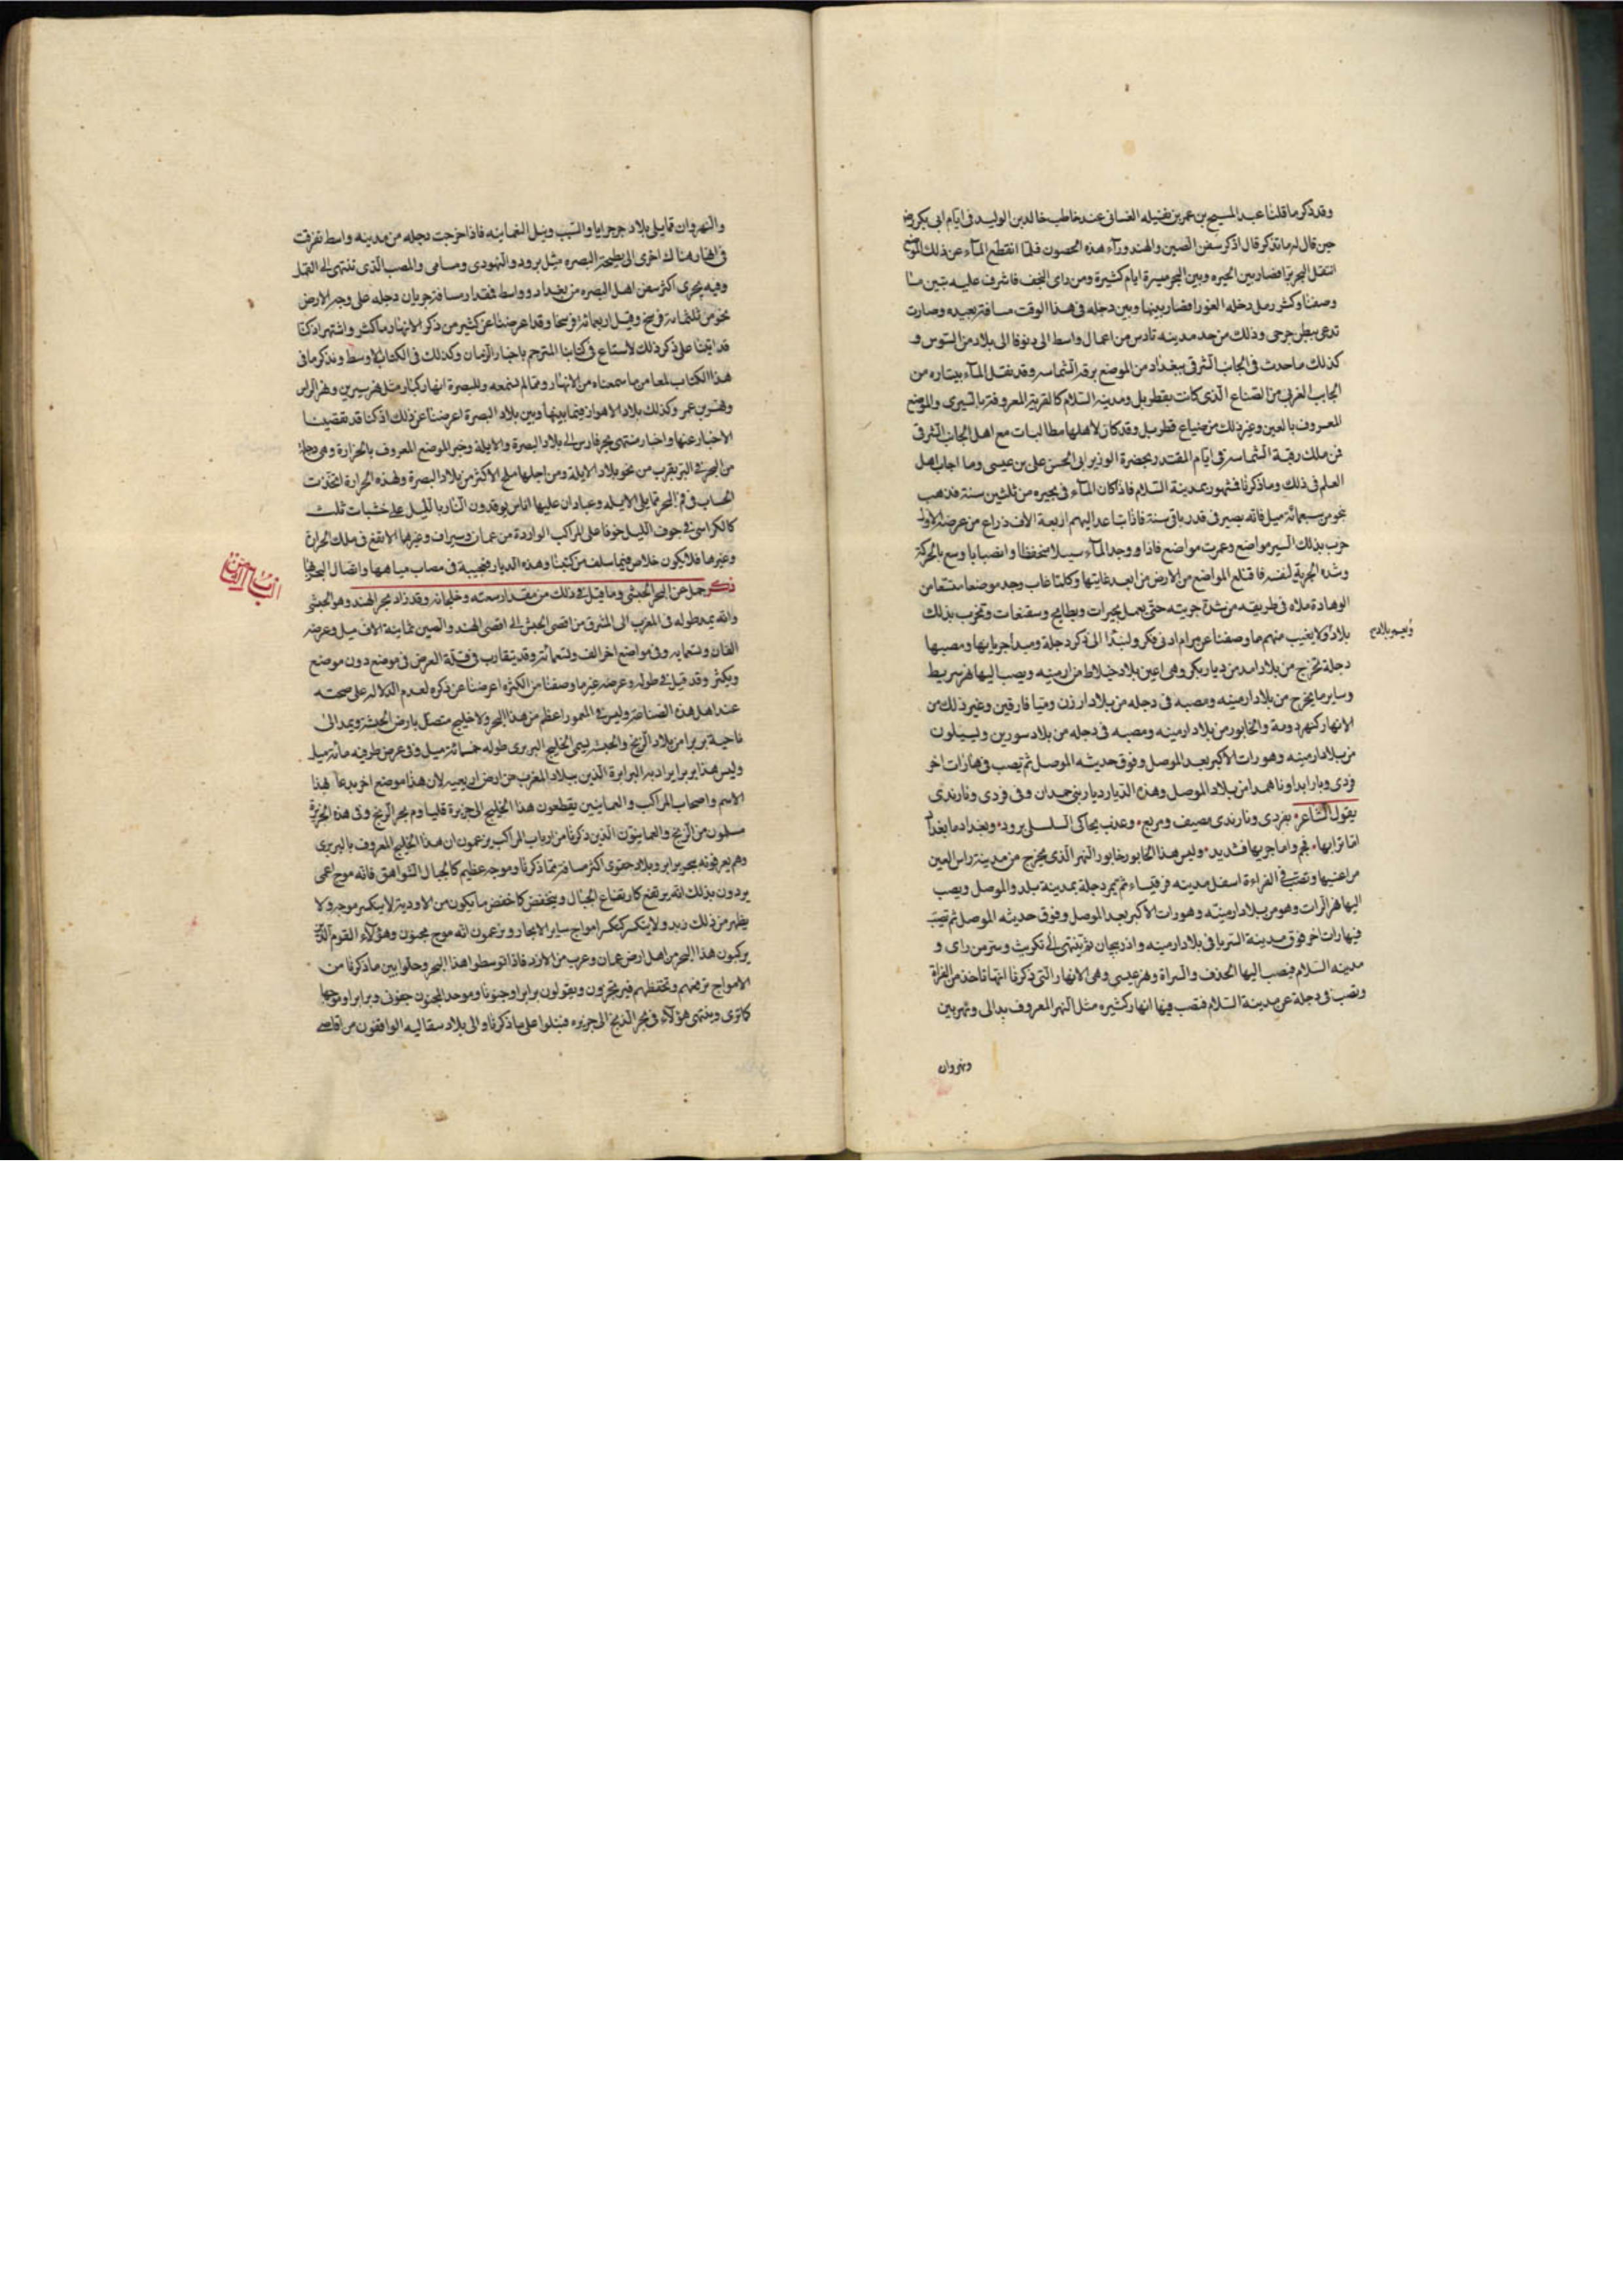 وقد ذكر ما قلنا عبد المسيح بن عمر بن نفيله الغسانى عند خاطب خالد بن الوليد فى ايام ابى بكر رض
حين قال له ما تذكر قال اذكر سفن الصين والهند ورآء هذه الحصون فلما انقطع المآء عن ذلك الموضع
انتقل البحر برّا فصار بين الحيره وبين البحر مسيرة ايام كثيرة ومن راى النجف فاشرف عليه تبين ما
وصفنا وكثر رمل دخله العورا فصار بينها وبين دجله فى هذا الوقت مسافة بعيده وصارت
تدعى ببطن جرحى وذلك من حد مدينه تادس من اعمال واسط الى دنوقا الى بلاد من السوس و
كذلك ما حدث فى الجانب الشرقى ببغداد من الموضع برقه الشماسه وقد نقل المآء بيتاره من
الجانب الغربى من الضياع الذى كانت بقطربل ومدينه السلام كالقرية المعروفة بالسيرى والموضع
المعروف بالعين وغير ذلك من ضياع قطربل وقد كان لاهلها مطالبات مع اهل الجانب الشرقى
فمن ملك رقبة الشماسه فى ايام المقتدر بحضرة الوزير ابى الحسن على بن عيسى وما اجاب اهل
العلم فى ذلك وما ذكرنا فمشهور بمدينة السلام فاذا كان المآء فى بحيره من ثلثين سنة قد هب
نحو من سبعمائة ميل فانه يصير فى قدر باقى سنة فاذا تباعد اليهم اربعة الاف ذراع من عرضه الاول
خرب بذلك السير مواضع وعمرت مواضع فاذا ووجد المآء سبيلا منخفضا وانصبابا وسع بالحركة
وشده الجرية لنفسه فاقتلع المواضع من الارض من ابعد غايتها وكلما غاب وجد موضعا متسعا من
الوهادة ملاه فى طريقه من شدة جريته حتى يعمل بحيرات وبطايح وسقنعات وتخرب بذلك
بلاد ولا يغيب منهم ما وصفنا عن من رام ادنى فكر ولنبدا الى ذكر دجلة ومبدا جريانها ومصبها
دجلة تخرج من بلاد امد من ديار بكر وهى اعين بلاد خلاط من ارمينه ويصب اليها نهر سربط
وساير ما يخرج من بلاد ارمينه ومصبه فى دجله من بلاد ارزن وميا فارقين وغير ذلك من
الانهار كنهر دومة والخابور من بلاد ارمينه ومصبه فى دجله من بلاد سورين وليلون
من بلاد ارمينه وهو رات الاكبر بعد الموصل وفوق حديثه الموصل ثم تصب فيها زات اخر
قردى وبارابدا وناهمدا من بلاد الموصل وهذه الديار ديار بنى حمدان وفى قردى ونارندى
يقول الشاعر بقردى ونارندى مصيف ومربع وعذب يحاكى السلسل برود وبغداد ما بغداد
اما ترابها فحم واما جربها فشديد وليس هذا الخابور خابور النهر الذى يخرج من مدينة راس العين
من اعنيها وتصب فى الفراءة اسفل مدينه قرقيساء ثم يمر دجلة بمدينة بلد والموصل ويصب
اليها نهر الرات وهو من بلاد ارمينه وهو رات الاكبر بعد الموصل وفوق حديثه الموصل ثم تصب
فيها رات اخر فوق مدينة التريا فى بلاد ارمينه واذربيجان ثم ينتهى الى تكريت وسر من راى و
مدينه السلام فيصب اليها الخذف والسراة ونهر عيسى وهى الانهار التى ذكرنا انها تاخذ من الفراة
وتصب فى دجلة عن مدينة السلام فتصب فيها انهار كثيره مثل النهر المعروف بدالى ونهربين
ونهروان
والنهروان مما يلى بلاد جرجرايا والسيب ونيل النعمانيه فاذا خرجت دجله من مدينه واسط تفرقت
فى انهار هناك اخرى الى بطيحة البصره مثل برود والنهودى وسامى والمصب الذى تنتهى الى القتل
وفيه يجرى اكثر سفن اهل البصره من بغداد وواسط فمقدار مسافة جريان دجله على وجه الارض
نحو من ثلثمائه فرسخ وقيل اربعمائة فرسخا وقد اعرضنا عن كثير من ذكر الانهار ما كثر واشتهر اذ كنا
قد اتينا على ذكر ذلك لاستاع فى كتابنا المترجم باخبار الزمان وكذلك فى الكتاب الاوسط ونذكر ما فى
هذا الكتاب لمعا من ما سمعناه من الانهار ومما لم نسمعه وللبصرة انهار كبار مثل نهر سيرين ونهر الراس
ونهر بن عمر وكذلك بلاد الاهواز فيما بينها وبين بلاد البصرة اعرضنا عن ذلك اذ كنا قد تقضينا
الاخبار عنها واخبار منتهى بحر فارس الى بلاد البصرة والابلة وخبر الموضع المعروف بالخرارة وهى دجلة
من البحر فى البر بقرب من نحو بلاد الابلة ومن اجلها ملح الاكثر من بلاد البصرة ولهذه الخرارة اتخذت
الخشاب فى فم البحر مما يلى الابله وعبادان عليها اناس يوقدون النار بالليل على خشبات ثلث
كالكراسى فى جوف الليل خوفا على المراكب الواردة من عمان وسيراف وغيرها الا تقع فى ملك الخرارة
وغيرها فلا يكون خلاص فيما سلف من كتبنا وهذه الديار فعجيبة فى مصاب مياهها واتصال البحر بها
ذكر جمل عن البحر الحبشى وما قيل فى ذلك من مقدار سعته وخلجانه وقد زاد بحر الهند وهو الحبشى
وانه يمد طوله فى المغرب الى المشرق من اقصى الحبش الى اقصى الهند والصين ثمانية الاف ميل وعرضه
الفان وتسمايه وفى مواضع اخر الف وتسعمائة وقد يتقارب فى قلة العرض فى موضع دون موضع
ويكثر وقد قيل فى طوله وعرضه غير ما وصفنا من الكثره اعرضنا عن ذكره لعدم الدلاله على صحته
عند اهل هذه الصناعة وليس فى المعمور اعظم من هذا البحر ولا خليج متصل بارض الحبشة ويمد الى
ناحية بربرا من بلاد الزنج والحبشه ليسمى الخليج البربرى طوله خمسمائة ميل وفى عرض طرفيه مائة ميل
وليس هذا بربرا يراد به البرابرة الذين ببلاد المغرب من ارض افريعيه لان هذا موضع اخر يدعا هذا
الاسم واصحاب المراكب والعمانيين يقطعون هذا الخليج الى جزيرة قليا وم بحر الزنج وفى هذه الجزيرة
مسلمون من الزنج والعمانيون الذين ذكرنا من ارباب المراكب يزعمون ان هذا الخليج المعروف بالبربرى
وهم يعرفونه ببحر برابر وبلاد حفوى اكثر مسافة مما ذكرنا وموجه عظيم كالجبال الشواهق فانه موج اعمى
يردون بذلك انه يرتفع كارتفاع الجبال وينخفض كاخفض ما يكون من الاودية لا ينكسر موجه ولا
يظهر من ذلك زبد ولا ينكسر كتكسر امواج ساير الابحار ويزعمون انه موج مجنون وهؤلآء القوم الذين
يركبون هذا البحر من اهل ارض عمان وعرب من الازد فاذا توسطوا هذا البحر وحلوا بين ما ذكرنا من
الامواج ترفعهم وتخفظهم فيرتجزون ويقولون برابرا وجنونا وموجد المجنون جفونى وبرابرا وموجها
كاترى وينتهى هؤلآء فى بحر الذنج الى جزيره قنبلوا على ما ذكرنا والى بلاد سفاليه الواقفون من اقاصى